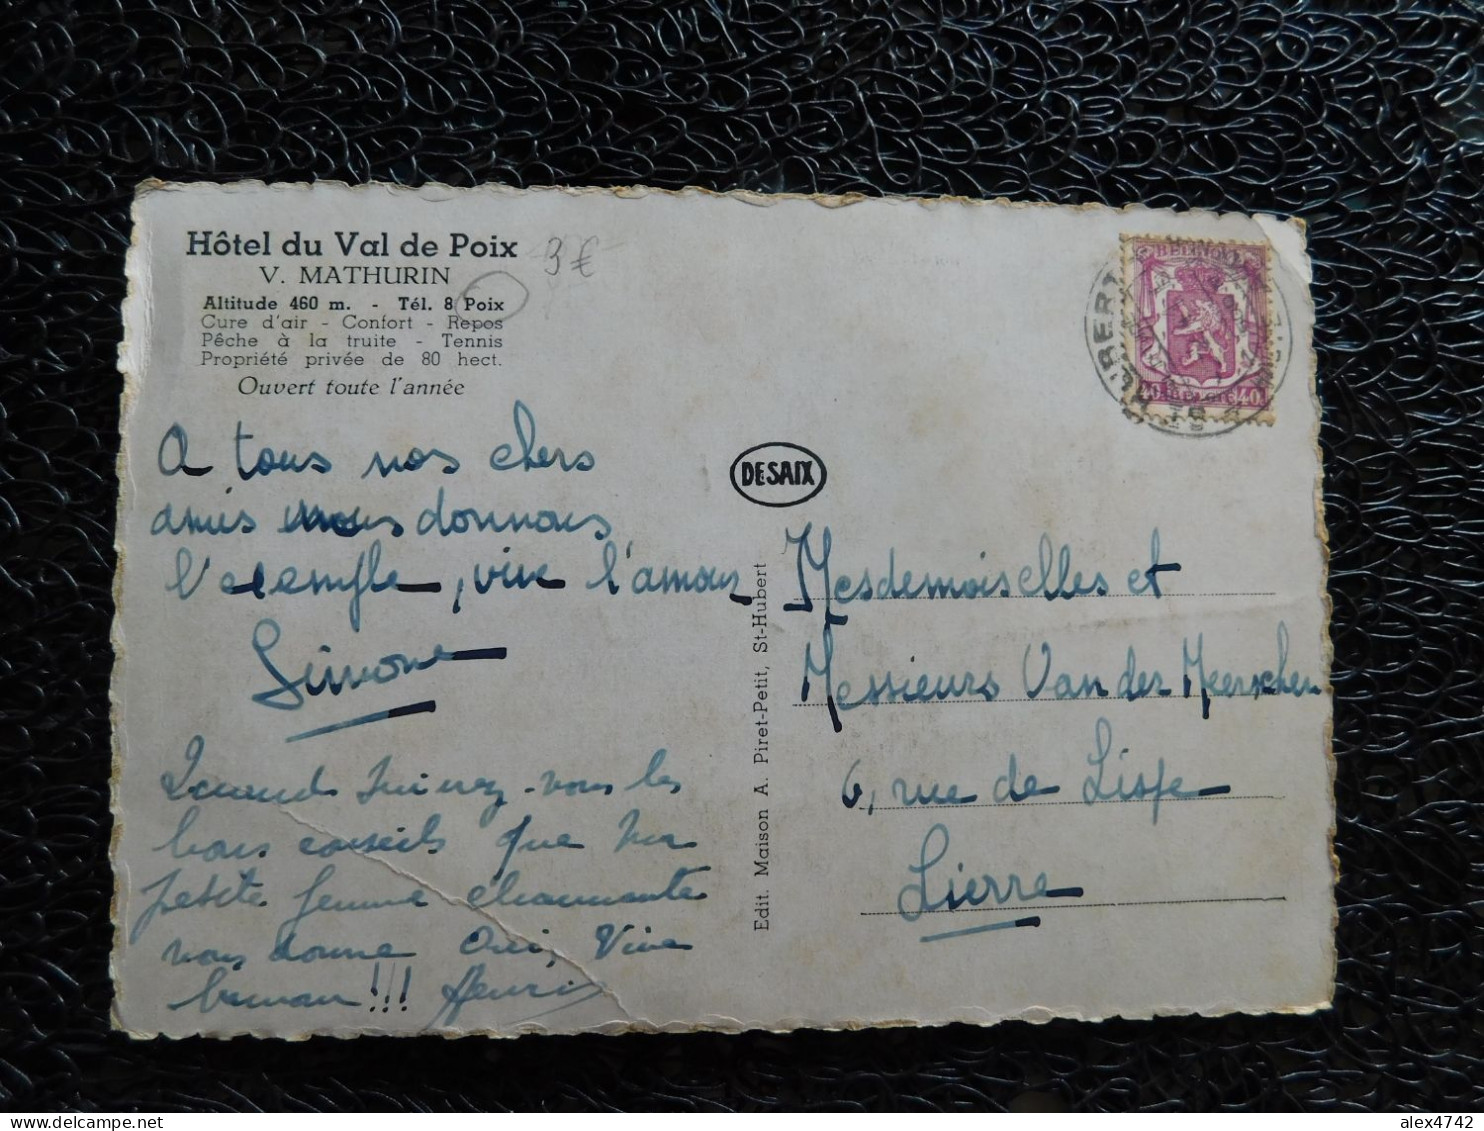 Hôtel du Val de Poix
V. MATHURIN
Altitude 460 m. - Tél. 8 Poix
Cure d'air - Confort - Repos
Pêche à la truite - Tennis
Propriété privée de 80 hect.
Ouvert toute l'année
3€
A tous nos chers
amis nous donnons
l'exemple, vive l'amour
Simone
Quand suivrez-vous les
bons conseils que ma
petite femme charmante
vous donne Oui, Vive
!!! Henri
DESAIX
Edit. Maison A. Piret-Petit, St-Hubert
Mesdemoiselles et
Messieurs Van der Meerschen
6, rue de Lispe
Lierre
ST HUBERT
40 40
alex4742